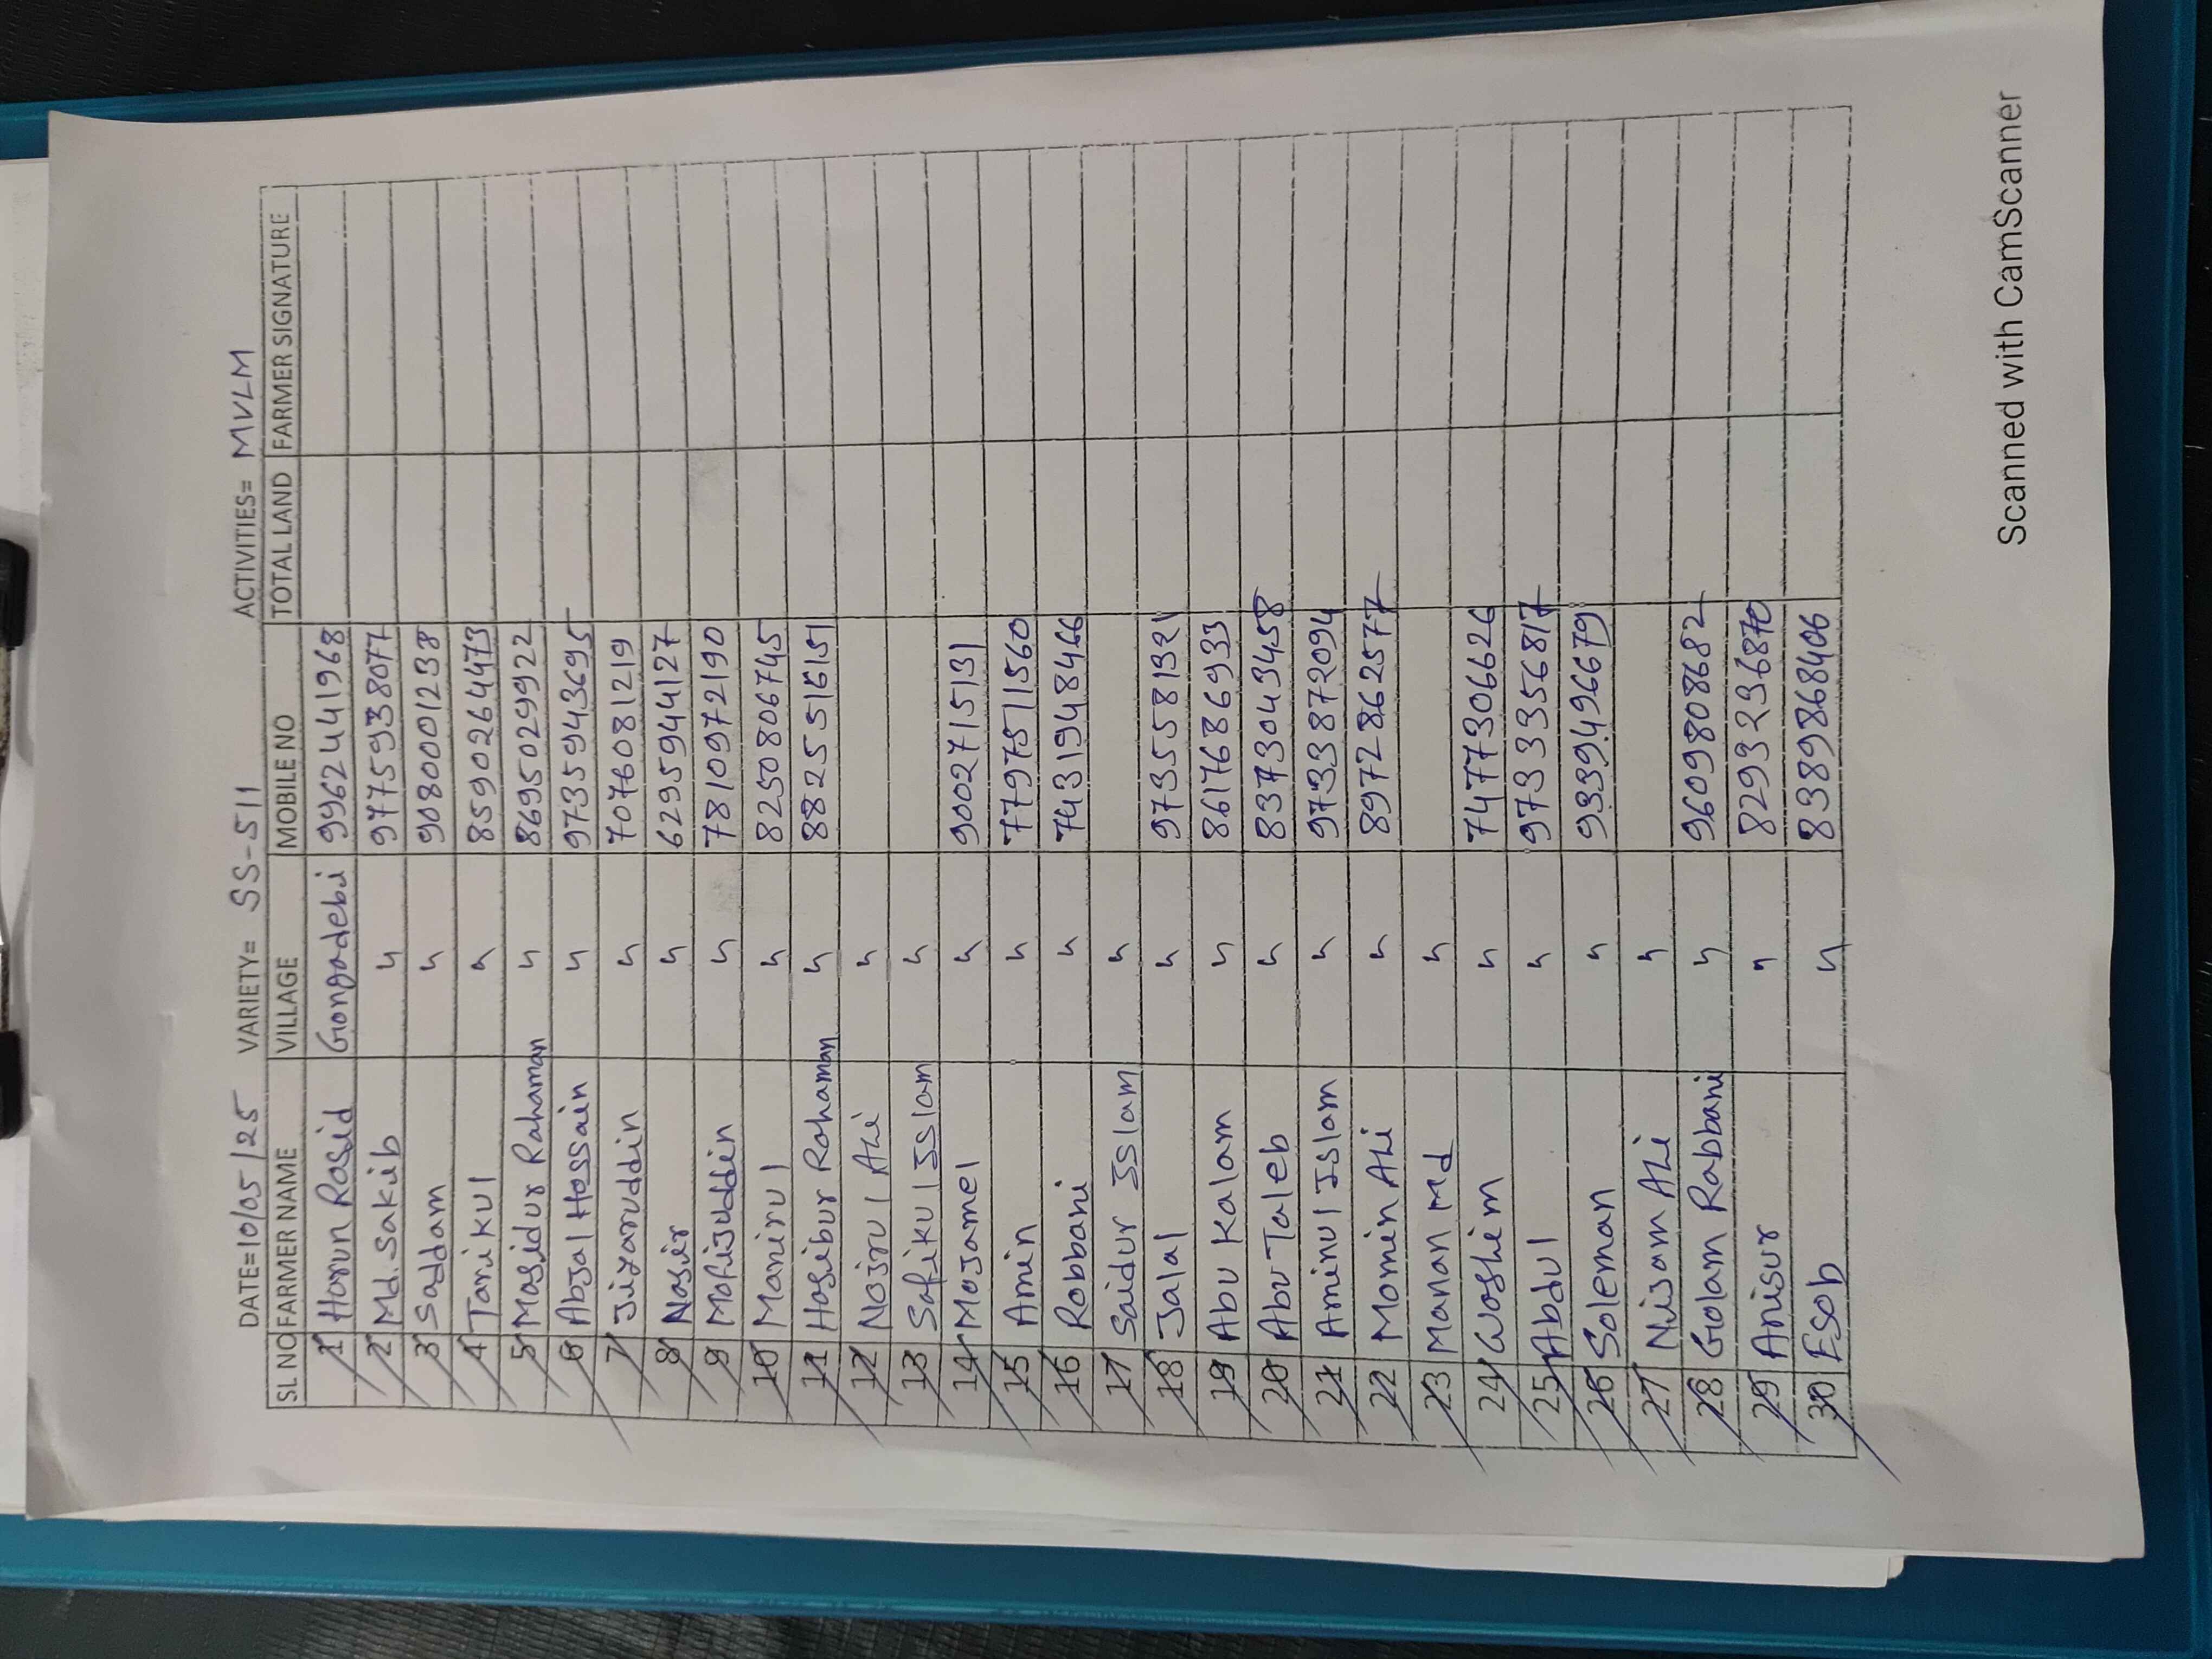 DATE=10/05/25 VARIETY= SS-511 ACTIVITIES= MVLM
SL NO FARMER NAME VILLAGE MOBILE NO TOTAL LAND FARMER SIGNATURE
1 Harun Rasid Gongadebi 9962441968
2 Md. Sakib " 9775938077
3 Saddam " 9080001238
4 Tarikul " 8590264473
5 Masidur Rahaman " 8695029922
6 Abjal Hossain " 9735943695
7 Jiyaruddin " 7076081219
8 Nasir " 6295944127
9 Mafijuddin " 7810972190
10 Manirul " 8250806745
11 Hasibur Rahaman " 8825516151
12 Najrul Ali "
13 Safikul Islam "
14 Mojamel " 9002715131
15 Amin " 7797511560
16 Robbani " 7431948466
17 Saidur Islam "
18 Jalal " 9735581321
19 Abu Kalam " 8617686933
20 Abu Taleb " 8373043458
21 Aminul Islam " 9733872094
22 Momin Ali " 8972862577
23 Manan Md "
24 Woshim " 7477306626
25 Abdul " 9733356817
26 Soleman " 9339496679
27 Nisam Ali "
28 Golam Rabbani " 9609808682
29 Anisur " 8293236870
30 Esob " 8389868406
Scanned with CamScanner